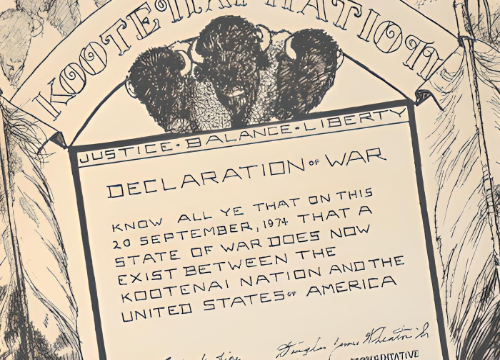 KOOTENAI NATION
JUSTICE · BALANCE · LIBERTY
DECLARATION OF WAR
KNOW ALL YE THAT ON THIS
20 SEPTEMBER, 1974 THAT A
STATE OF WAR DOES NOW
EXIST BETWEEN THE
KOOTENAI NATION AND THE
UNITED STATES OF AMERICA
Douglas James Wheaton Sr